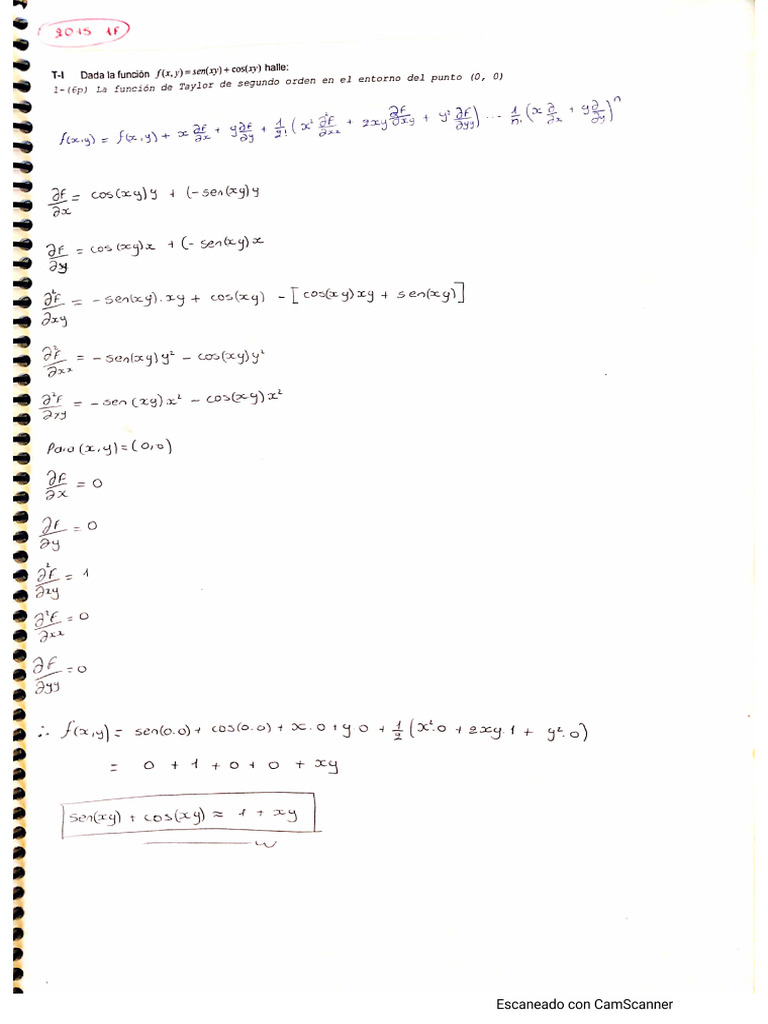 2015 1F
T-I Dada la función f(x, y) = sen(xy) + cos(xy) halle:
1-(6p) La función de Taylor de segundo orden en el entorno del punto (0, 0)
f(x,y) = f(x,y) + x ∂f/∂x + y ∂f/∂y + 1/2! (x² ∂²f/∂xx + 2xy ∂²f/∂xy + y² ∂²f/∂yy) ... 1/n! (x ∂/∂x + y ∂/∂y)ⁿ
∂f/∂x = cos(xy)y + (-sen(xy)y
∂f/∂y = cos(xy)x + (-sen(xy)x
∂²f/∂xy = -sen(xy).xy + cos(xy) - [cos(xy)xy + sen(xy)]
∂²f/∂xx = -sen(xy)y² - cos(xy)y²
∂²f/∂yy = -sen(xy)x² - cos(xy)x²
Para (x,y)=(0,0)
∂f/∂x = 0
∂f/∂y = 0
∂²f/∂xy = 1
∂²f/∂xx = 0
∂f/∂yy = 0
∴ f(x,y) = sen(0.0) + cos(0.0) + x.0 + y.0 + 1/2 (x².0 + 2xy.1 + y².0)
= 0 + 1 + 0 + 0 + xy
sen(xy) + cos(xy) ≈ 1 + xy
Escaneado con CamScanner